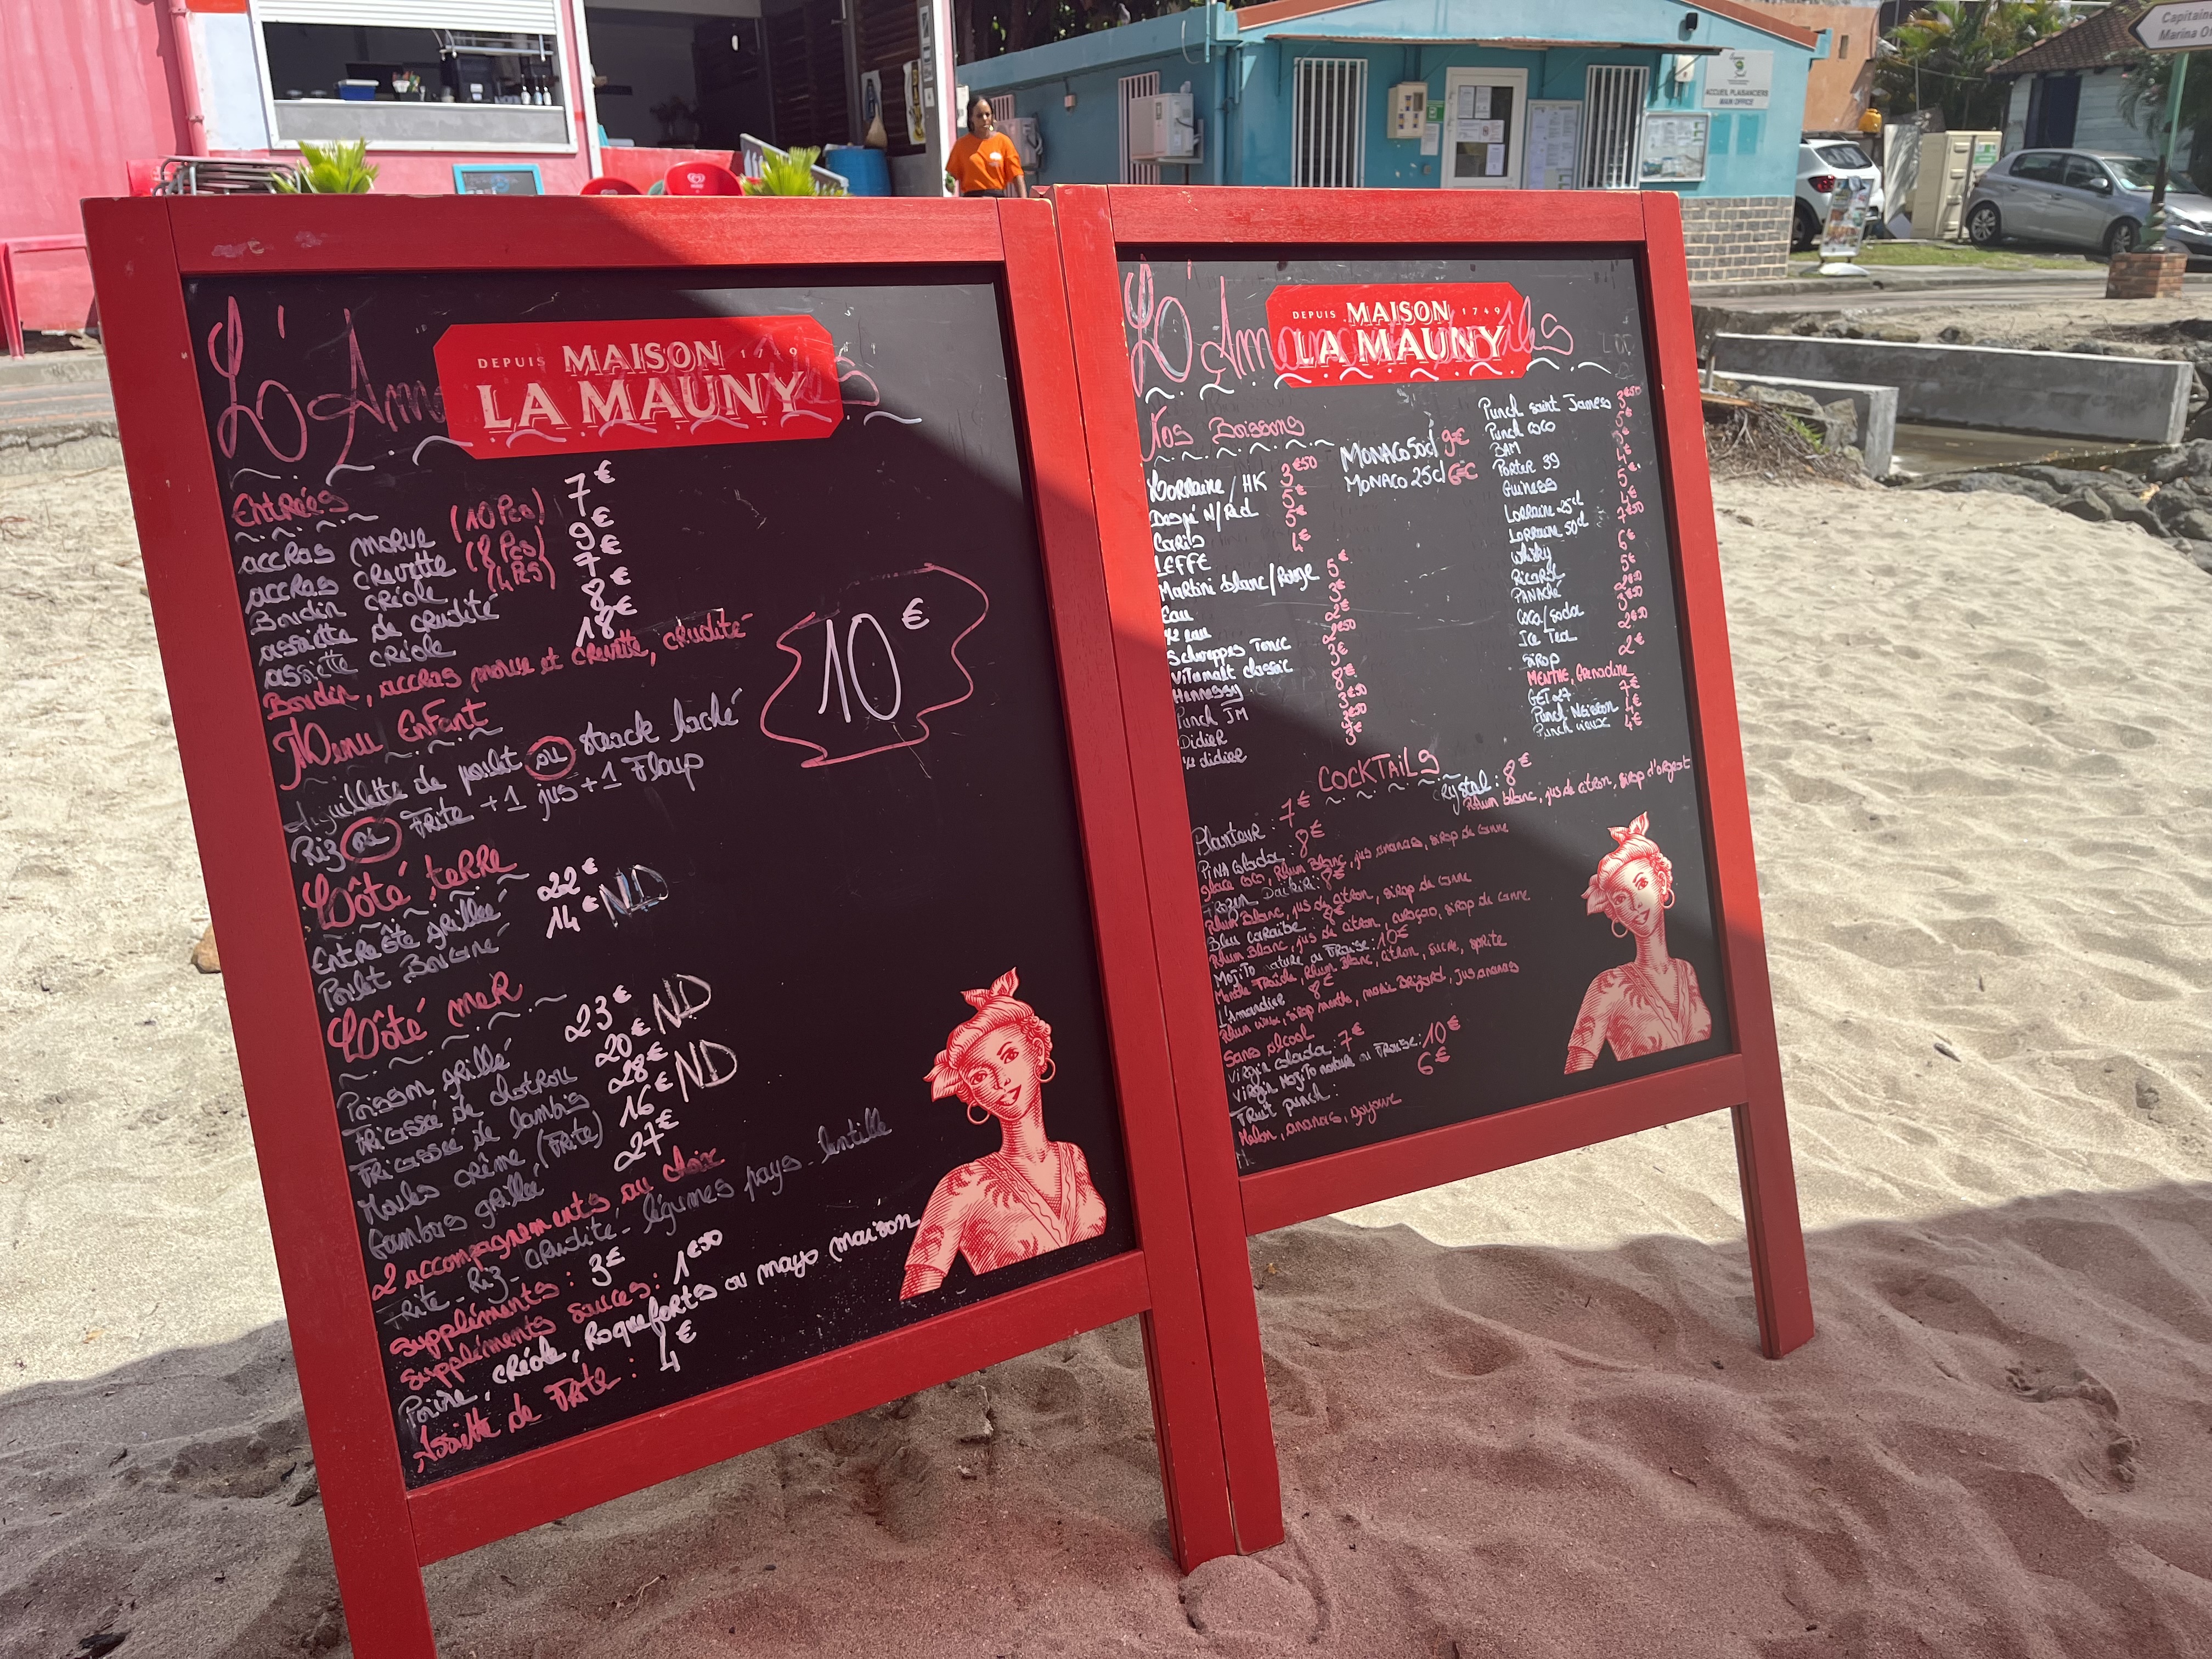 DEPUIS MAISON 1749
LA MAUNY
Entrées
accras morue (10 Pcs) 7€
accras crevette (8 Pcs) 9€
Boudin créole (4 Pcs) 7€
assiette de crudité 8€
assiette créole 18€
Boudin, accras morue et crevette, crudité
Menu Enfant
10€
Aiguillette de poulet ou steack haché
Riz ou Frite + 1 jus + 1 Floup
Côté terre
Entrecôte grillée 22€
Poulet Boucané 14€ ND
Côté mer
Poisson grillé 23€
Fricassée de chatrou 20€ ND
Fricassée de lambis 28€
Moules crème (Frite) 16€ ND
Gambas grillée 27€
2 accompagnements au choix
Frite - Riz - crudité - légumes pays - lentille
Suppléments : 3€
Suppléments sauces : 1€50
Poivre, créole, Roqueforts ou mayo maison
Assiette de Frite : 4€
DEPUIS MAISON 1749
LA MAUNY
Nos Boissons
Lorraine / HK 3€50
Despé N/Red 5€
Carib 5€
LEFFE 4€
Martini blanc/Rouge 5€
Eau 3€
½ eau 2€
Schweppes Tonic 2€50
Vitamalt classic 3€
Hennessy 8€
Punch JM 3€50
Didier 3€50
½ didier 3€
MONACO 50cl 9€
MONACO 25cl 6€
Punch saint James 3€50
Punch coco
BAM
Porter 39
Guiness
Lorraine 25cl
Lorraine 50cl
Whisky
Ricard
PANACHé
Coca/soda
Ice Tea
Sirop 2€
MENTHE, Grenadine
GET 27
Punch Neisson
Punch vieux 4€
COCKTAILS
Crystal : 8€
Rhum blanc, jus de citron, sirop d'orgeat
Planteur : 7€
PINA colada : 8€
glace coco, Rhum Blanc, jus ananas, sirop de canne
Frozen Daikiri : 8€
Rhum Blanc, jus de citron, sirop de canne
Bleu caraïbe : 8€
Rhum Blanc, jus de citron, curaçao, sirop de canne
Mojito nature ou Fraise : 10€
Menthe Fraîche, Rhum Blanc, citron, sucre, sprite
L'Amandier 8€
Rhum vieux, sirop menthe, marie Brizard, jus ananas
Sans alcool
Virgin colada : 7€
Virgin Mojito nature ou Fraise : 10€
Fruit punch : 6€
Melon, ananas, goyave
ACCUEIL PLAISANCIERS
MAIN OFFICE
Capitain
Marina